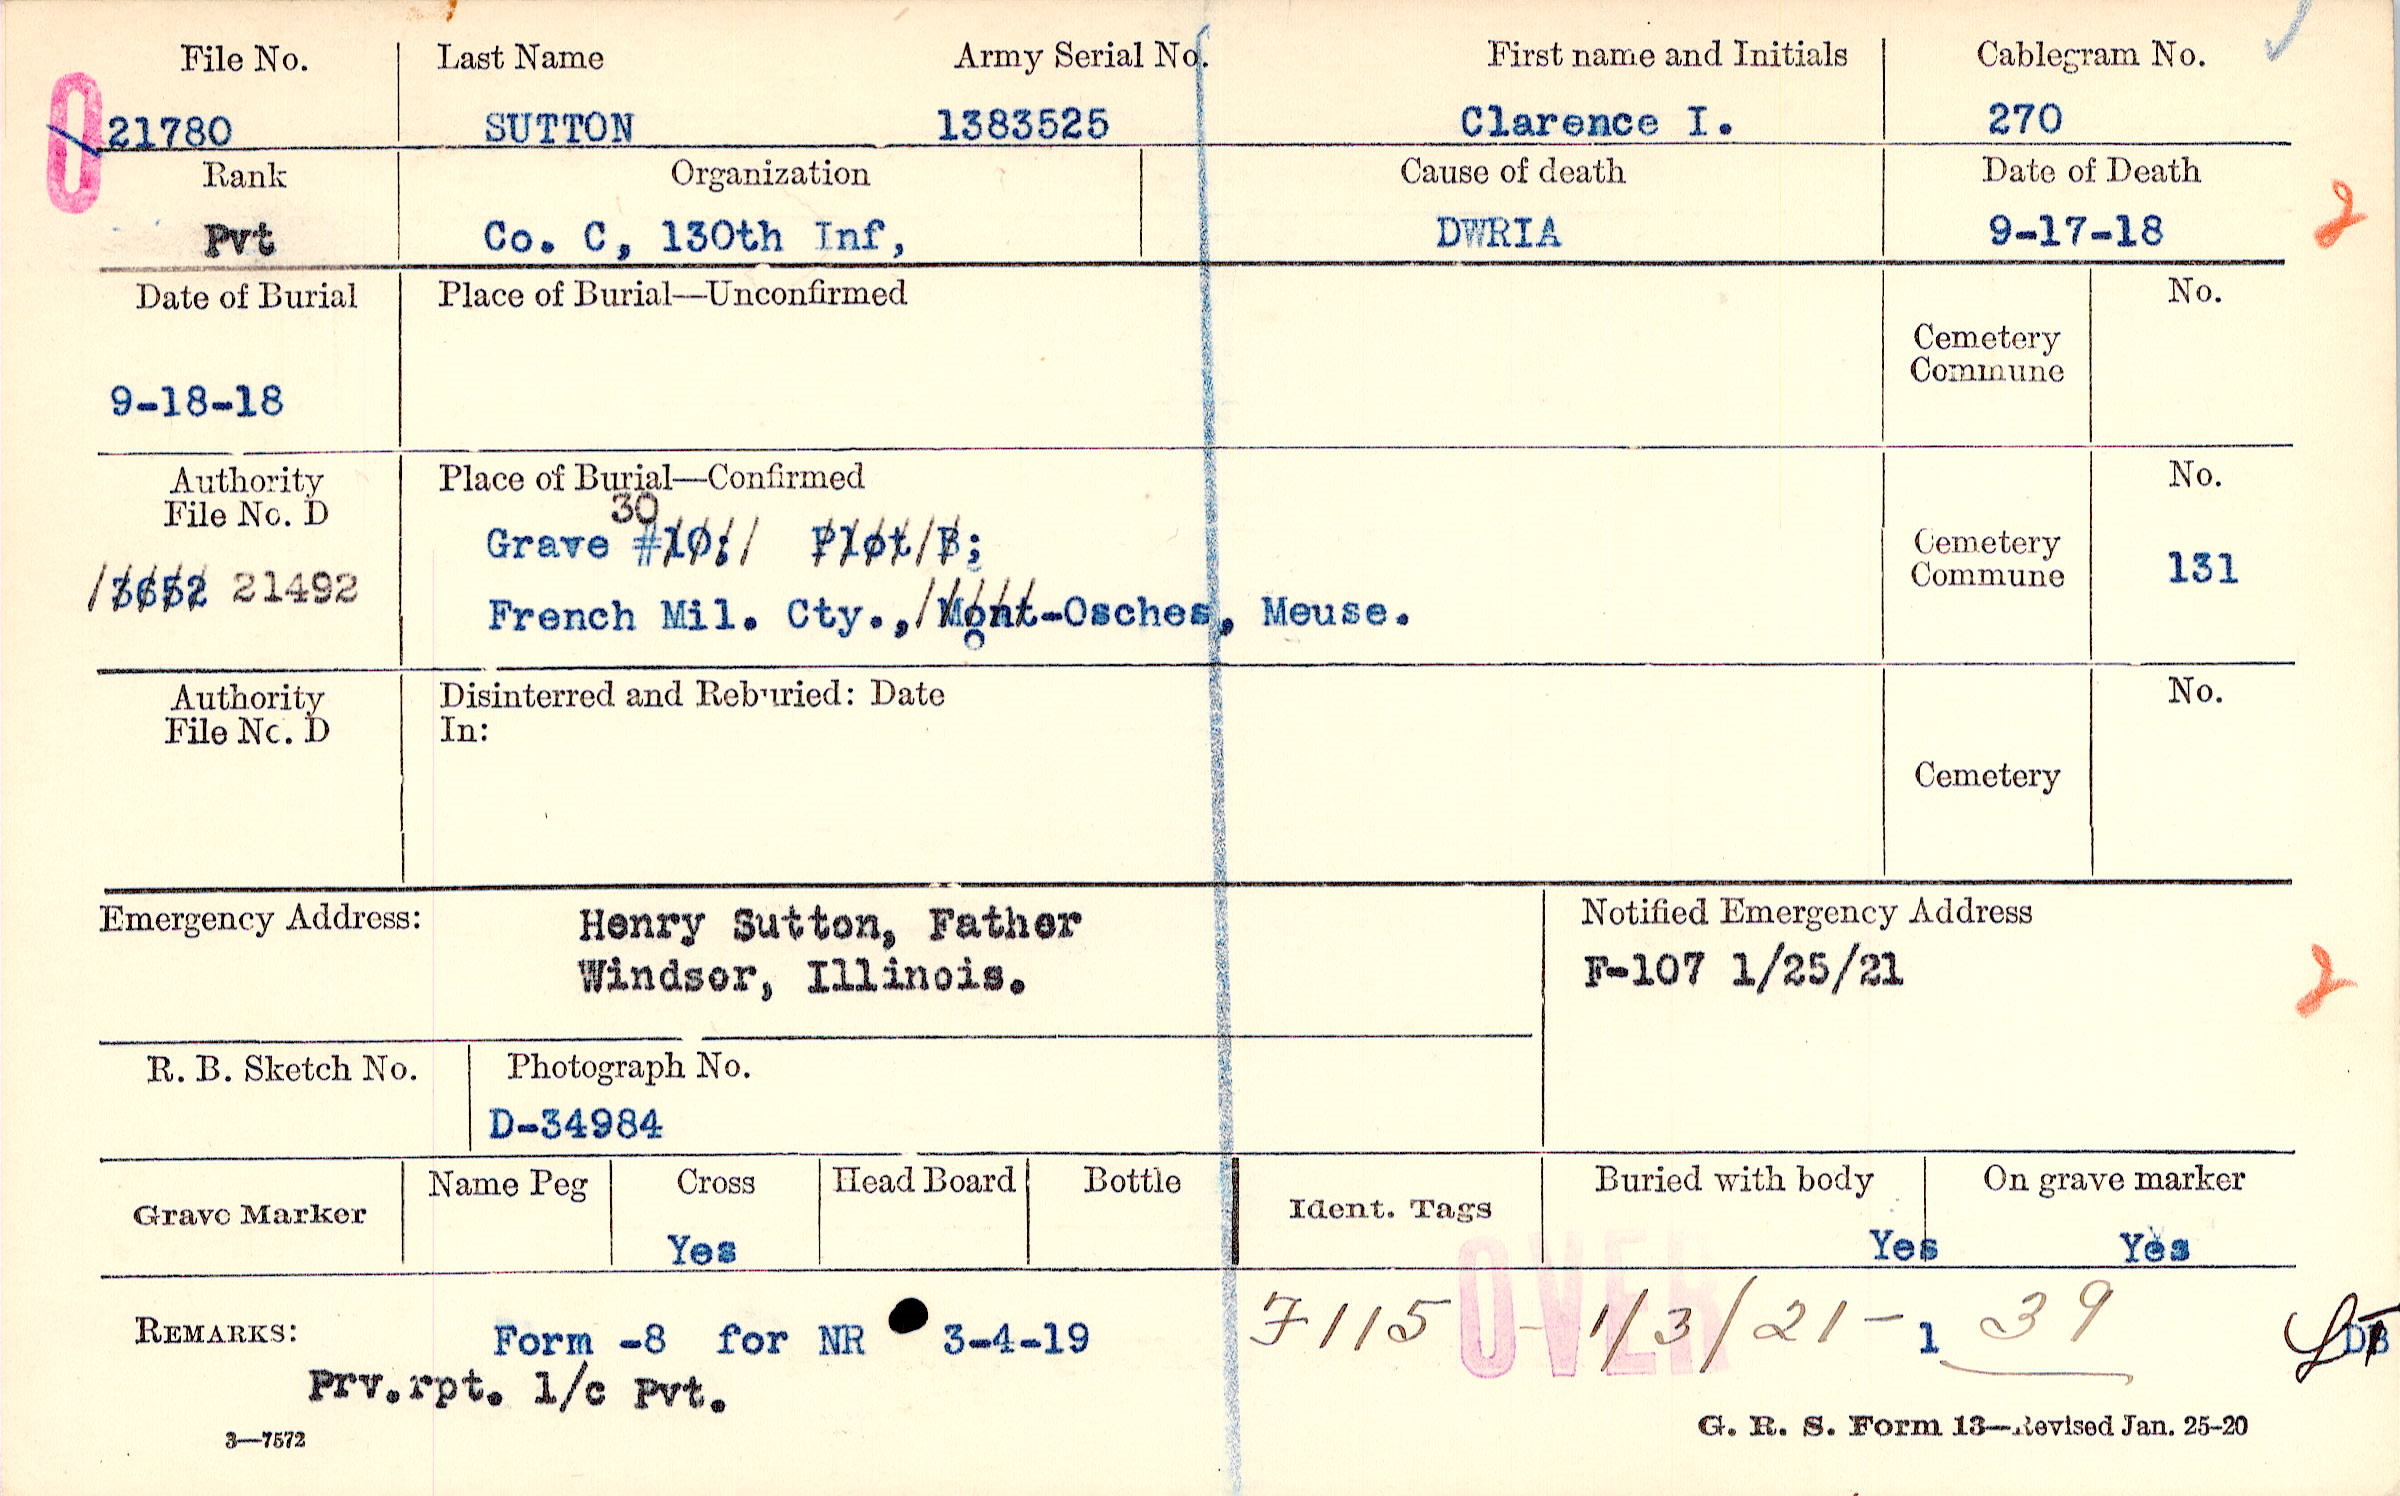 File No. Last Name Army Serial No. First name and Initials Cablegram No.
21780 SUTTON 1383525 Clarence I. 270
Rank Organization Cause of death Date of Death
Pvt Co. C, 130th Inf, DWRIA 9-17-18
2
Date of Burial Place of Burial—Unconfirmed No.
Cemetery
Commune
9-18-18
Authority Place of Burial—Confirmed No.
File No. D
30
Grave #10; Plot B;
Cemetery
Commune 131
3652 21492
French Mil. Cty., Mont-Osches, Meuse.
Authority Disinterred and Reburied: Date No.
File No. D In:
Cemetery
Emergency Address: Henry Sutton, Father Notified Emergency Address
Windsor, Illinois. F-107 1/25/21
2
R. B. Sketch No. Photograph No.
D-34984
Grave Marker Name Peg Cross Head Board Bottle Ident. Tags Buried with body On grave marker
Yes Yes Yes
OVER
REMARKS: Form -8 for NR 3-4-19 7115 - 1/3/21 - 1 39
Prv.rpt. 1/c Pvt.
3—7572 G. R. S. Form 13—Revised Jan. 25-20